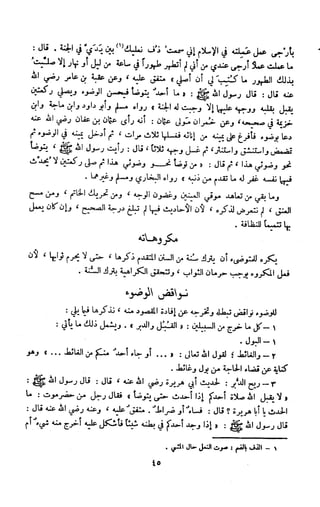 بأرجى عمل عملته في الإسلام إني سمعت دف نعليك(١) بين يدي في الجنة . قال :
ما عملت عملا أرجى عندي من أني لم أتطهر طهورا في ساعة من ليل أو نهار إلا صليت
بذلك الطهور ما كتب لي أن أصلي » متفق عليه ، وعن عقبة بن عامر رضي الله
عنه قال : قال رسول الله ﷺ : « ما أحد يتوضأ فيحسن الوضوء ويصلي ركعتين
يقبل بقلبه ووجهه عليهما إلا وجبت له الجنة » رواه مسلم وأبو داود وابن ماجة وابن
خزيمة في صحيحه ، وعن حمران مولى عثمان : أنه رأى عثمان بن عفان رضي الله عنه
دعا بوضوء فأفرغ على يمينه من إنائه فغسلها ثلاث مرات ، ثم أدخل يمينه في الوضوء ثم
تمضمض واستنشق واستنثر ، ثم غسل وجهه ثلاثا ، قال : رأيت رسول الله ﷺ ، يتوضأ
نحو وضوئي هذا ، ثم قال : « من توضأ نحو وضوئي هذا ثم صلى ركعتين لا يحدث
فيهما نفسه غفر له ما تقدم من ذنبه » رواه البخاري ومسلم وغيرهما .
وما بقي من تعاهد موقي العينين وغضون الوجه ، ومن تحريك الخاتم ، ومن مسح
العنق ، لم نتعرض لذكره ، لأن الأحاديث فيها لم تبلغ درجة الصحيح ، وإن كان يعمل
بها تتميما للنظافة .
مكروهاته
يكره للمتوضىء أن يترك سنة من السنن المتقدم ذكرها ، حتى لا يحرم ثوابها ، لأن
فعل المكروه يوجب حرمان الثواب ، وتتحقق الكراهية بترك السنة .
نواقض الوضوء
للوضوء نواقض تبطله وتخرجه عن إفادة المقصود منه ، نذكرها فيما يلي :
١ – كل ما خرج من السبيلين : « القبل والدبر » . ويشمل ذلك ما يأتي :
١ – البول .
٢ – والغائط ؛ لقول الله تعالى : « ... أو جاء أحد منكم من الغائط ... » وهو
كناية عن قضاء الحاجة من بول وغائط .
٣ – ريح الدبر : لحديث أبي هريرة رضي الله عنه ، قال : قال رسول الله ﷺ :
« لا يقبل الله صلاة أحدكم إذا أحدث حتى يتوضأ » فقال رجل من حضرموت : ما
الحدث يا أبا هريرة ؟ قال : « فساء أو ضراط » . متفق عليه ، وعنه رضي الله عنه قال :
قال رسول الله ﷺ : « إذا وجد أحدكم في بطنه شيئا فأشكل عليه أخرج منه شيء أم
١ – الدف بالضم : صوت النعل حال المشي .
٤٥